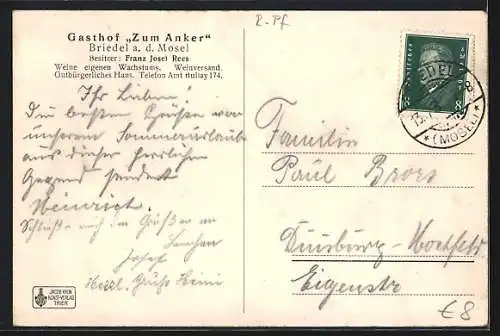 Gasthof „Zum Anker"
Briedel a. d. Mosel
Besitzer: Franz Josef Rees
Weine eigenen Wachstums. Weinversand.
Gutbürgerliches Haus. Telefon Amt Bullay 174.
Ihr Lieben!
Die besten Grüße von
unserem Sommerurlaub
aus dieser herrlichen
Gegend sendet
Heinrich.
Josef
Herzl. Gruß Heini
JACOB KREIN
KUNST-VERLAG
TRIER
8 8
(MOSEL)
Familie
Paul Brors
Duisburg-Hochfeld
Eigenstr
€8